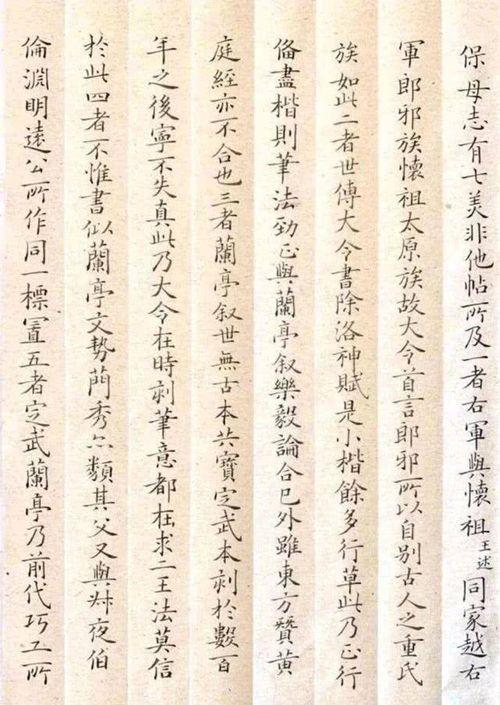 保母志有七美非他帖所及一者右軍與懷祖王述同家越右
軍郎邪族懷祖太原族故大令首言郎邪所以自別古人之重氏
族如此二者世傳大令書除洛神賦是小楷餘多行草此乃正行
俻盡楷則筆法勁正與蘭亭叙樂毅論合已外雖東方贊黄
庭經亦不合也三者蘭亭叙世無古本共寶定武本刻於數百
年之後寧不失真此乃大令在時刻筆意都在求二王法莫信
於此四者不惟書似蘭亭文勢蕳秀亦類其父又與㕙夜伯
倫淵明遠公所作同一標置五者定武蘭亭乃前代巧工所